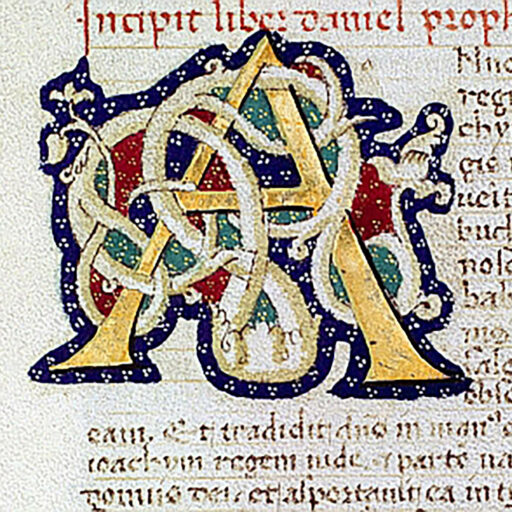 Incipit liber daniel proph
A
regi
chy
gie
ueit
buch
nose
bab
eam. Et tradidit dns in man
ioachym regem iude, et parte ua
domus dei, et asportauit ea in t